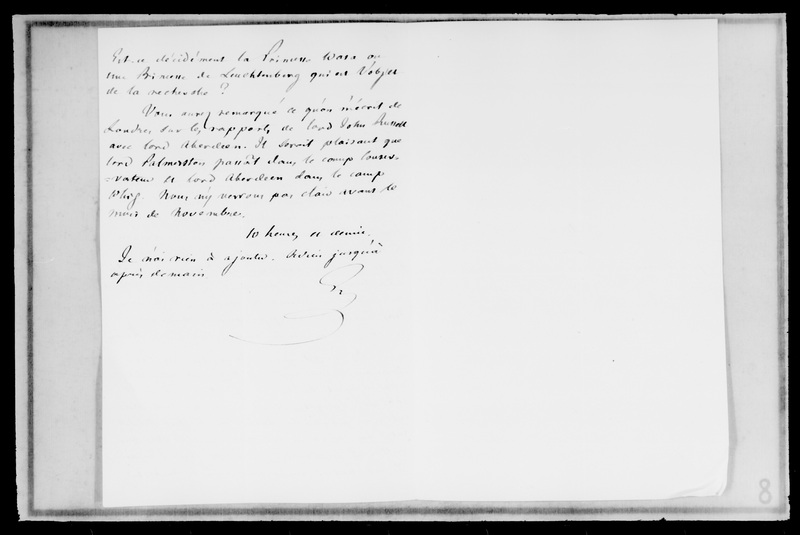 Est-ce décidément la Princesse Wasa ou
une Princesse de Leuchtenberg qui est l'objet
de la recherche ?
Vous aurez remarqué ce qu'on m'écrit de
Londres sur les rapports de lord John Russell
avec lord Aberdeen. Il serait plaisant que
lord Palmerston passât dans le camp conser-
-vateur et lord Aberdeen dans le camp
Whig. Nous n'y verrons pas clair avant le
mois de novembre.
10 heures et demie.
Je n'ai rien à ajouter. Adieu jusqu'à
après demain
8